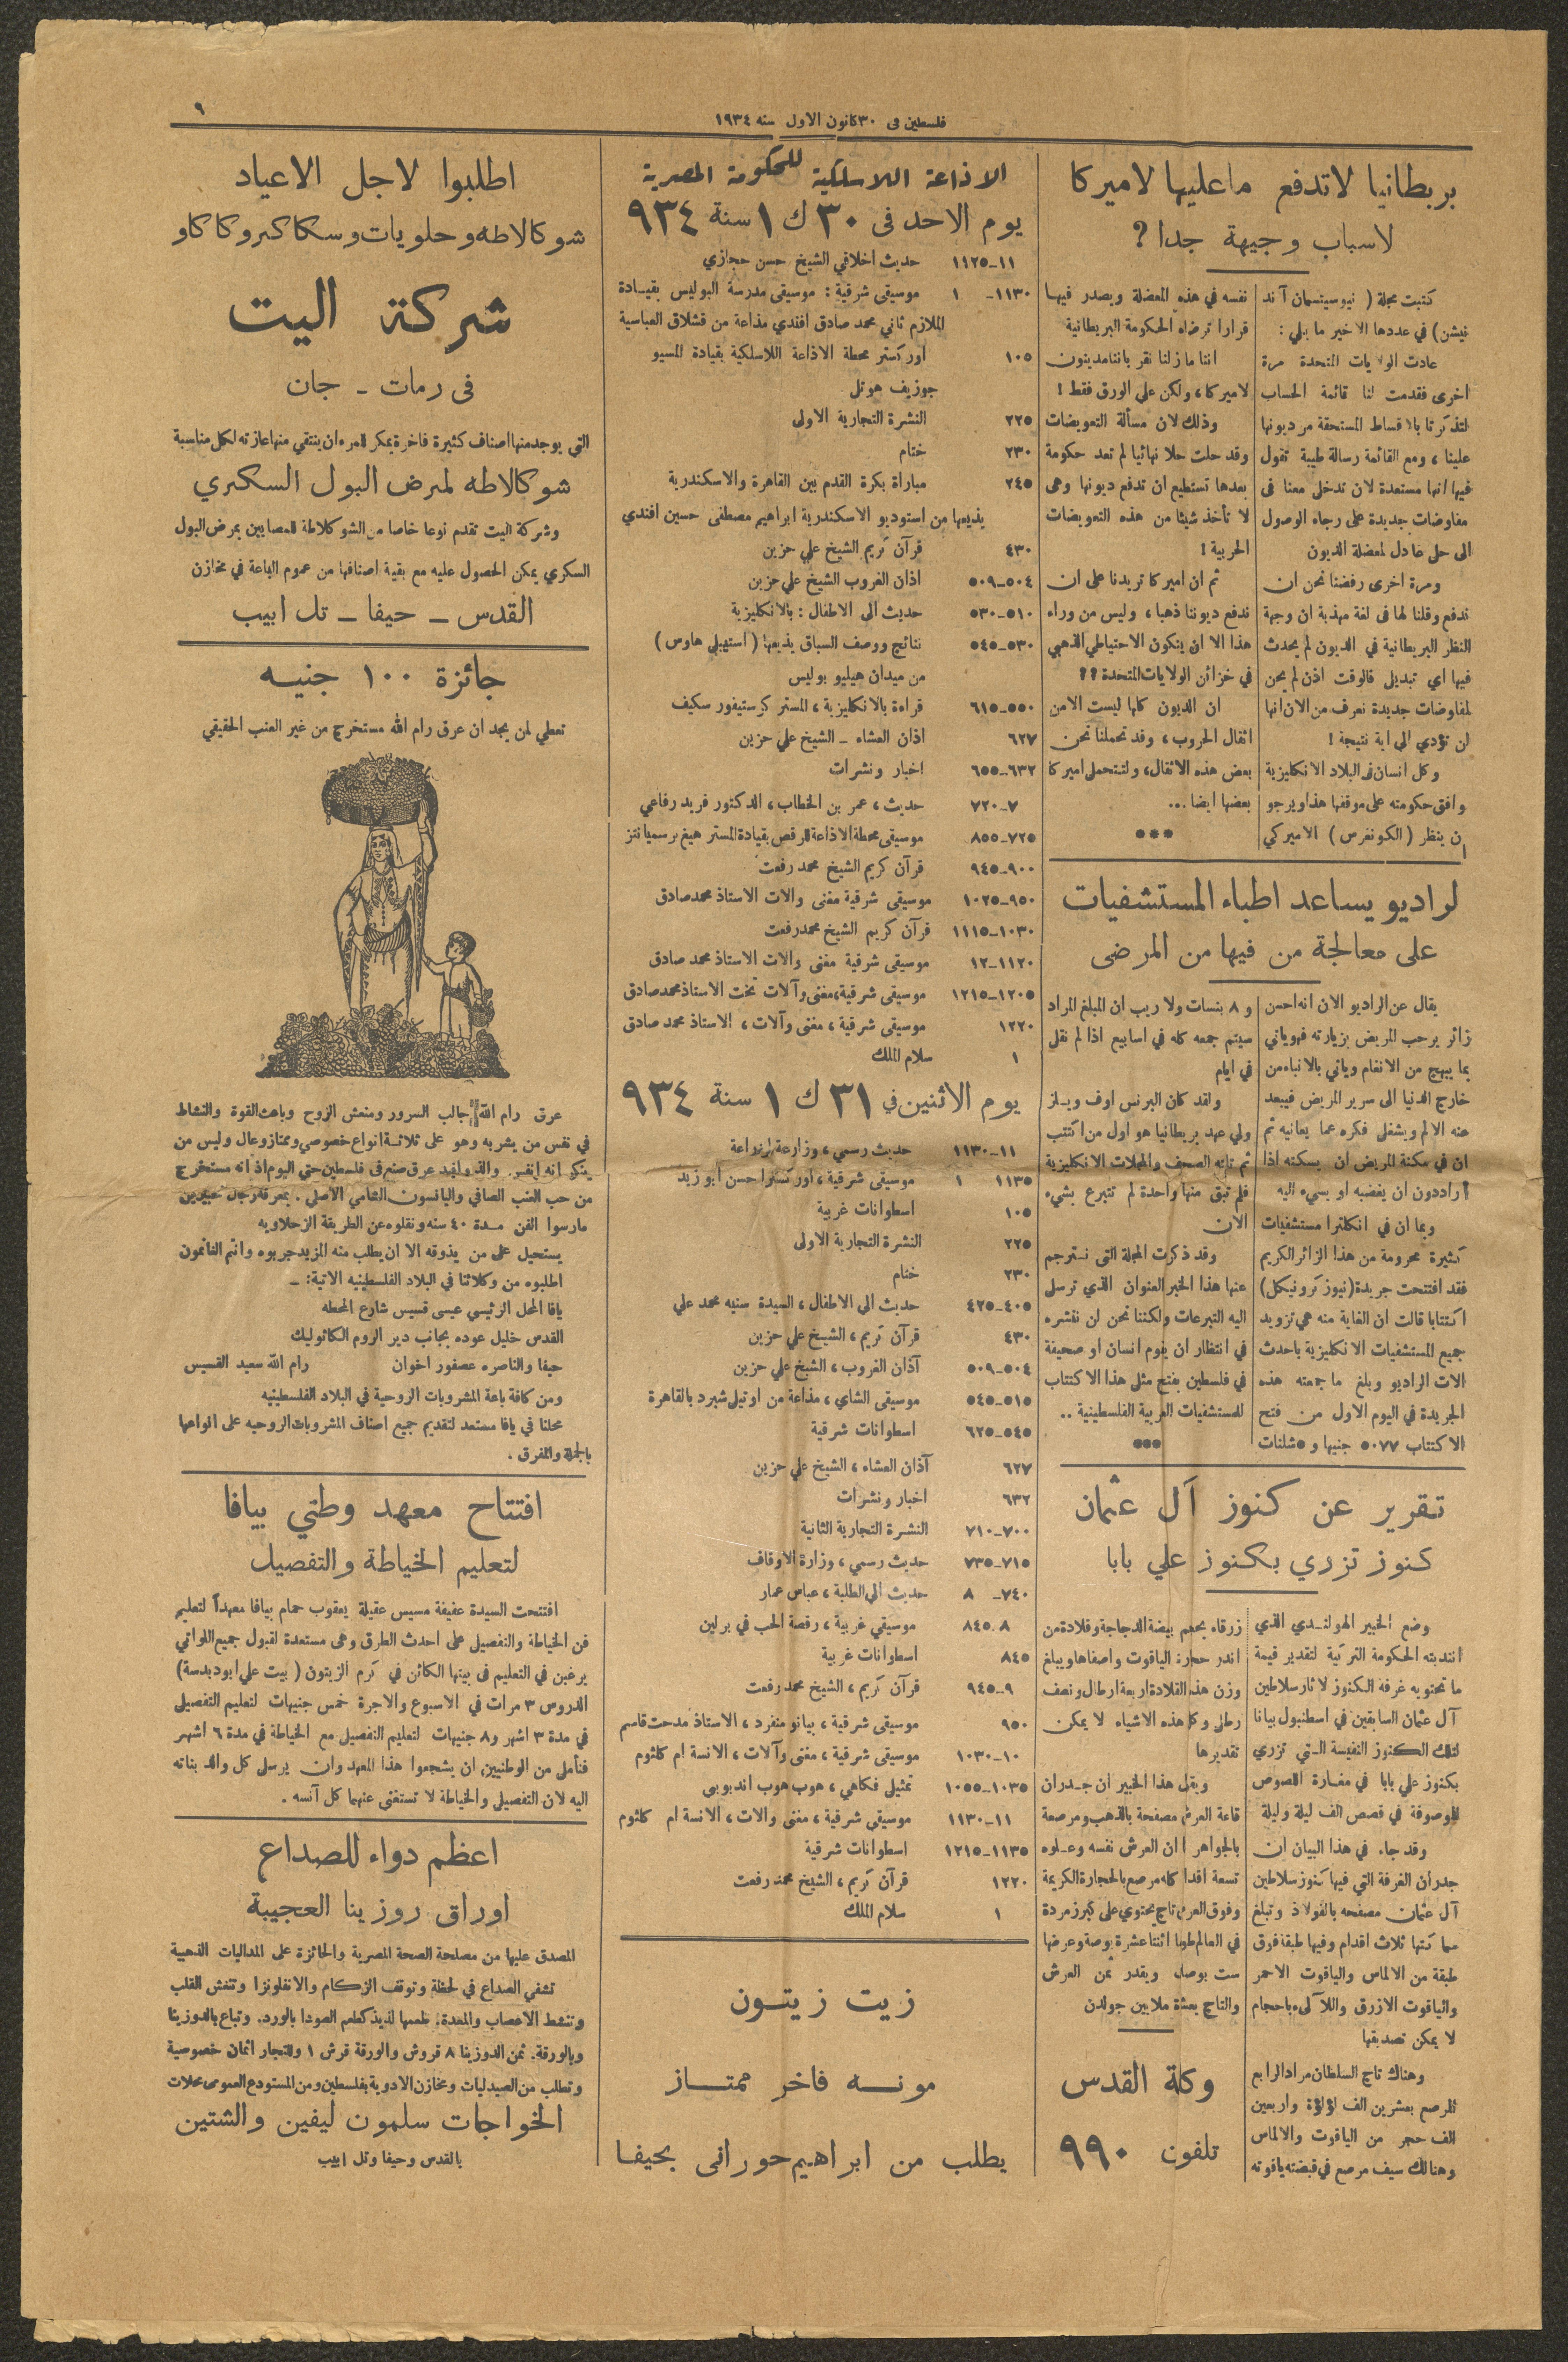 فلسطين في ٣٠ كانون الاول سنه ١٩٣٤
٩
بريطانيا لاتدفع ماعليها لاميركا
لاسباب وجيهة جدا ؟
كتبت مجلة ( نيوسيتسمان آند
نيشن) في عددها الاخير ما يلي :
عادت الولايات المتحدة مرة
اخرى فقدمت لنا قائمة الحساب
لتذكرنا بالاقساط المستحقة من ديونها
علينا ، ومع القائمة رسالة طيبة تقول
فيها انها مستعدة لان تدخل معنا فى
مفاوضات جديدة على رجاء الوصول
الى حل عادل لمعضلة الديون
ومرة اخرى رفضنا نحن ان
ندفع وقلنا لها فى لغة مهذبة ان وجهة
النظر البريطانية في الديون لم يحدث
فيها اي تبديل فالوقت اذن لم يحن
لمفاوضات جديدة نعرف من الان انها
لن تؤدي الى اية نتيجة !
وكل انسان فى البلاد الانكليزية
وافق حكومته على موقفها هذا ويرجو
ان ينظر (الكونغرس) الاميركي
نفسه في هذه المعضلة ويصدر فيها
قرارا ترضاه الحكومة البريطانية
اننا ما زلنا نقر باننا مدينون
لاميركا ، ولكن على الورق فقط !
وذلك لان مسألة التعويضات
وقد حلت حلا نهائيا لم تعد حكومة
بعدها تستطيع ان تدفع ديونها وهى
لا تأخذ شيئا من هذه التعويضات
الحربية !
ثم ان اميركا تريدنا على ان
ندفع ديوننا ذهبا ، وليس من وراء
هذا الا ان يتكون الاحتياطي الذهبي
في خزائن الولايات المتحدة ؟؟
ان الديون كلها ليست الا من
اثقال الحروب ، وقد تحملنا نحن
بعض هذه الاثقال ، ولتتحمل اميركا
بعضها ايضا ...
***
لراديو يساعد اطباء المستشفيات
على معالجة من فيها من المرضى
يقال عن الراديو الان انه احسن
زائر يرحب المريض بزيارته فهو ياتي
بما يبهج من الانغام وياتي بالانباء من
خارج الدنيا الى سرير المريض فيبعد
عنه الالم ويشغل فكره عما يعانيه ثم
ان في مكنة المريض ان يسكته اذا
اراد دون ان يغضبه او يسيء اليه
وبما ان في انكلترا مستشفيات
كثيرة محرومة من هذا الزائر الكريم
فقد افتتحت جريدة (نيوز كرونيكل)
اكتتابا قالت ان الغاية منه هي تزويد
جميع المستشفيات الانكليزية باحدث
الات الراديو وبلغ ما جمعته هذه
الجريدة في اليوم الاول من فتح
الاكتتاب ٥٠٧٧ جنيها و ٥ شلنات
و ٨ بنسات ولا ريب ان المبلغ المراد
سيتم جمعه كله في اسابيع اذا لم نقل
في ايام
ولقد كان البرنس اوف ويلز
ولي عهد بريطانيا هو اول من اكتتب
ثم تلته الصحف والمجلات الانكليزية
فلم تبق منها واحدة لم تتبرع بشيء
الان
وقد ذكرت المجلة التى نترجم
عنها هذا الخبر العنوان الذي ترسل
اليه التبرعات ولكننا نحن لن ننشره
في انتظار ان يقوم انسان او صحيفة
في فلسطين يفتح مثل هذا الاكتتاب
للمستشفيات العربية الفلسطينية ..
***
تقرير عن كنوز آل عثمان
كنوز تزري بكنوز علي بابا
وضع الخبير الهولندي الذي
انتدبته الحكومة التركية لتقدير قيمة
ما تحتويه غرفة الكنوز لاثار سلاطين
آل عثمان السابقين في اسطنبول بيانا
لتلك الكنوز النفيسة التي تزري
بكنوز علي بابا في مغارة اللصوص
الموصوفة في قصص الف ليلة وليلة
وقد جاء في هذا البيان ان
جدران الغرفة التي فيها كنوز سلاطين
آل عثمان مصفحه بالفولاذ وتبلغ
سماكتها ثلاث اقدام وفيها طبقة فوق
طبقة من الالماس والياقوت الاحمر
والياقوت الازرق واللآلىء باحجام
لا يمكن تصديقها
وهناك تاج السلطان مراد الرابع
المرصع بعشرين الف لؤلؤة واربعين
الف حجر من الياقوت والالماس
وهنالك سيف مرصع في قبضته ياقوته
زرقاء بحجم بيضة الدجاجة وقلادة من
اندر حجارة الياقوت واصفاها ويبلغ
وزن هذه القلادة اربعة ارطال ونصف
رطل وكل هذه الاشياء لا يمكن
تقديرها
ويقول هذا الخبير ان جدران
قاعة العرش مصفحة بالذهب ومرصعة
بالجواهر ان العرش نفسه وعلوه
تسعة اقدام كله مرصع بالحجارة الكريمة
وفوق العرش تاج يحتوي على كبر زمردة
في العالم طولها اثنتا عشرة بوصة وعرضها
ست بوصات ويقدر ثمن العرش
والتاج بعشرة ملايين جولدن
وكلة القدس
تلفون ٩٩٠
الاذاعة اللاسلكية للحكومة المصرية
يوم الاحد فى ٣٠ ك ١ سنة ٩٣٤
١١-١١٢٥ حديث اخلاقي الشيخ حسن حجازي
١١٣٠- ١ موسيقى شرقية : موسيقى مدرسة البوليس بقيادة
الملازم ثاني محمد صادق افندي مذاعة من قشلاق العباسية
١٠٥ اوركستر محطة الاذاعة اللاسلكية بقيادة المسيو
جوزيف هوتل
٢٢٥ النشرة التجارية الاولى
٢٣٠ ختام
٢٤٥ مباراة بكرة القدم بين القاهرة والاسكندرية
يذيعها من استوديو الاسكندرية ابراهيم مصطفى حسين افندي
٤٣٠ قرآن كريم الشيخ علي حزين
٥٠٤-٥٠٩ اذان الغروب الشيخ علي حزين
٥١٠-٥٣٠ حديث الى الاطفال : بالانكليزية
٥٣٠-٥٤٥ نتائج ووصف السباق يذيعها ( استهبلي هاوس )
من ميدان هيليو بوليس
٥٥٠-٦١٥ قراءة بالانكليزية ، المستر كرستيفور سكيف
٦٢٧ اذان العشاء - الشيخ علي حزين
٦٣٢-٦٥٥ اخبار ونشرات
٧-٧٢٠ حديث ، عمر بن الخطاب ، الدكتور فريد رفاعي
٧٢٥-٨٥٥ موسيقى محطة الاذاعة للرقص بقيادة المستر هيغ برسميانتز
٩٠٠-٩٤٥ قرآن كريم الشيخ محمد رفعت
٩٥٠-١٠٢٥ موسيقى شرقية مغنى والات الاستاذ محمد صادق
١٠٣٠-١١١٥ قرآن كريم الشيخ محمد رفعت
١١٢٠-١٢ موسيقى شرقية مغنى والات الاستاذ محمد صادق
١٢٠٥-١٢١٥ موسيقى شرقية ، مغنى وآلات تخت الاستاذ محمد صادق
١٢٢٠ موسيقى شرقية ، مغنى وآلات ، الاستاذ محمد صادق
١ سلام الملك
يوم الاثنين في ٣١ ك ١ سنة ٩٣٤
١١-١١٣٠ حديث رسمي ، وزارعة الزراعة
١١٣٥ ١ موسيقى شرقية ، اوركسترا حسن ابو زيد
١٠٥ اسطوانات غربية
٢٢٥ النشرة التجارية الاولى
٢٣٠ ختام
٤٠٥-٤٢٥ حديث الى الاطفال ، السيدة سنيه محمد علي
٤٣٠ قرآن كريم ، الشيخ علي حزين
٥٠٤-٥٠٩ آذان الغروب ، الشيخ علي حزين
٥١٥-٥٤٥ موسيقى الشاي ، مذاعة من اوتيل شبرد بالقاهرة
٥٤٥-٦٢٥ اسطوانات شرقية
٦٢٧ آذان العشاء ، الشيخ علي حزين
٦٣٢ اخبار ونشرات
٧٠٠-٧١٠ النشرة التجارية الثانية
٧١٥-٧٣٥ حديث رسمي ، وزارة الاوقاف
٧٤٠- ٨ حديث الى الطلبة ، عباس عمار
٨-٨٤٥ موسيقي غربية ، رقصة الحب في برلين
٨٤٥ اسطوانات غربية
٩-٩٤٥ قرآن كريم ، الشيخ محمد رفعت
٩٥٠ موسيقى شرقية ، بيانو منفرد ، الاستاذ مدحت قاسم
١٠-١٠٣٠ موسيقى شرقية ، مغنى وآلات ، الانسة ام كلثوم
١٠٣٥-١٠٥٥ تمثيل فكاهي ، هوب هوب اند بوبى
١١-١١٣٠ موسيقى شرقية ، مغنى والات ، الانسة ام كلثوم
١١٣٥-١٢١٥ اسطوانات شرقية
١٢٢٠ قرآن كريم ، الشيخ محمد رفعت
١ سلام الملك
زيت زيتون
مونه فاخر ممتاز
يطلب من ابراهيم حورانى بحيفا
اطلبوا لاجل الاعياد
شوكالاطه وحلويات وسكاكر وكاكاو
شركة اليت
فى رمات - جان
التي يوجد منها اصناف كثيرة فاخرة يمكن للمرء ان ينتقي منها عازته لكل مناسبة
شوكالاطه لمرض البول السكري
وشركة اليت تقدم نوعا خاصا من الشوكلاطة للمصابين بمرض البول
السكري يمكن الحصول عليه مع بقية اصنافها من عموم الباعة في مخازن
القدس - حيفا - تل ابيب
جائزة ١٠٠ جنيه
تعطي لمن يجد ان عرق رام الله مستخرج من غير العنب الحقيقي
عرق رام الله جالب السرور ومنعش الروح وباعث القوة والنشاط
في نفس من يشربه وهو على ثلاثة انواع خصوصي وممتاز وعال وليس من
ينكر انه انفس والذ واجود عرق صنع فى فلسطين حتى اليوم اذ انه مستخرج
من حب العنب الصافي واليانسون الشامي الاصلي . بمعرفة رجال خبيرين
مارسوا الفن مدة ٤٠ سنه ونقلوه عن الطريقة الزحلاويه
يستحيل على من يذوقه الا ان يطلب منه المزيد جربوه وانتم الغانمون
اطلبوه من وكلائنا في البلاد الفلسطينيه الاتية : -
يافا المحل الرئيسي عيسى قسيس شارع المحطه
القدس خليل عوده بجانب دير الروم الكاثوليك
حيفا والناصره عصفور اخوان رام الله سعيد القسيس
ومن كافة باعة المشروبات الروحية في البلاد الفلسطينيه
محلنا في يافا مستعد لتقديم جميع اصناف المشروبات الروحيه على انواعها
بالجملة والمفرق .
افتتاح معهد وطني بيافا
لتعليم الخياطة والتفصيل
افتتحت السيدة عفيفة مسيس عقيلة يعقوب حمام بيافا معهداً لتعليم
فن الخياطة والتفصيل على احدث الطرق وهى مستعدة لقبول جميع اللواتي
يرغبن في التعليم فى بيتها الكائن في كرم الزيتون ( بيت علي ابو دبسة )
الدروس ٣ مرات في الاسبوع والاجرة خمس جنيهات لتعليم التفصيل
في مدة ٣ اشهر و٨ جنيهات لتعليم التفصيل مع الخياطة في مدة ٦ اشهر
فنأمل من الوطنيين ان يشجعوا هذا المعهد وان يرسل كل والد بناته
اليه لان التفصيل والخياطة لا تستغنى عنهما كل آنسه .
اعظم دواء للصداع
اوراق روزينا العجيبة
المصدق عليها من مصلحة الصحة المصرية والحائزة على المداليات الذهبية
تشفي الصداع في لحظة وتوقف الزكام والانفلونزا وتنعش القلب
وتنشط الاعصاب والمعدة . طعمها لذيذ كطعم الصودا بالورد . وتباع بالدوزينا
وبالورقة . ثمن الدوزينا ٨ قروش والورقة قرش ١ وللتجار اثمان خصوصية
وتطلب من الصيدليات ومخازن الادوية بفلسطين ومن المستودع العمومى محلات
الخواجات سلمون ليفين والشتين
بالقدس وحيفا وتل ابيب